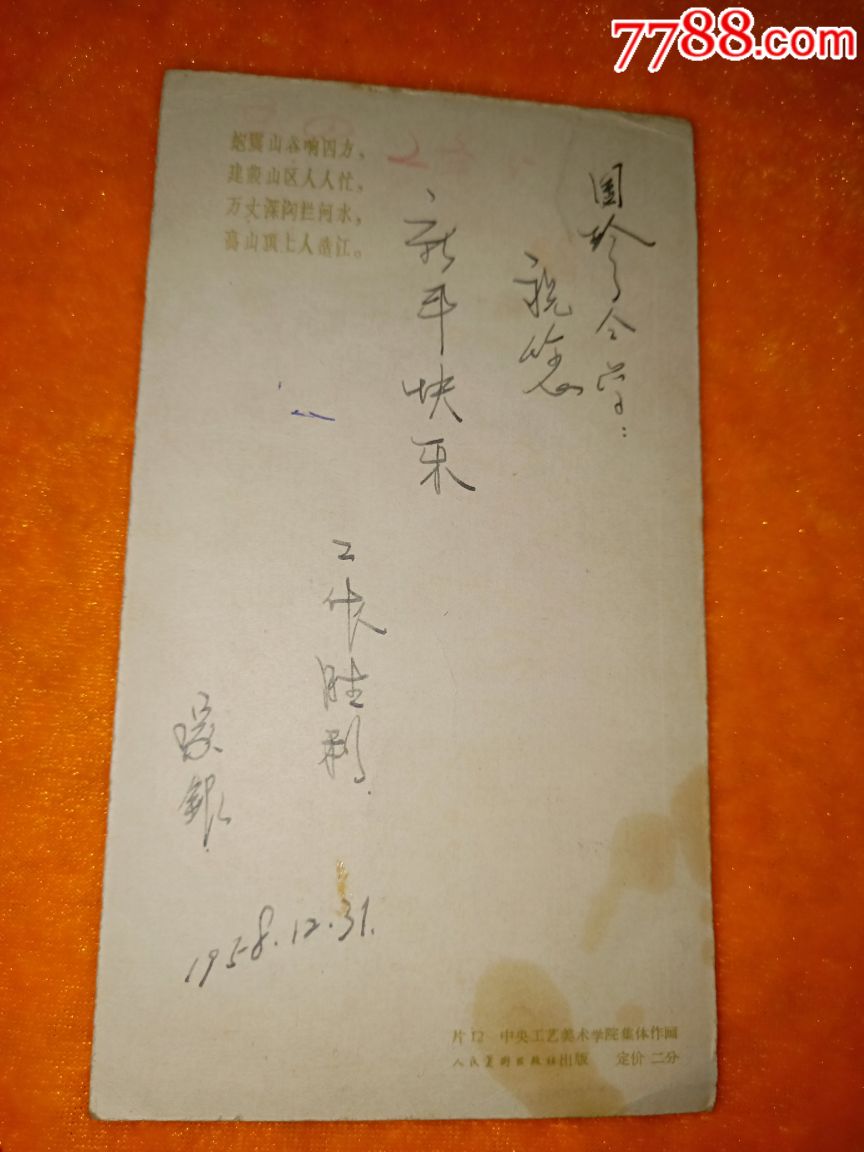 7788.com
炮震山谷响四方，
建设山区人人忙，
万丈深沟拦河水，
高山顶上人造江。
国珍同学：
祝您
新年快乐
工作胜利
银
1958.12.31.
片12 中央工艺美术学院集体作画
人民美术出版社出版 定价 二分